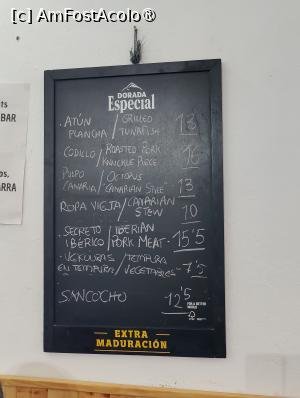 [c] AmFostAcolo®
DORADA
Especial
BAR
ARRA
ATÚN / GRILLED
PLANCHA / TUNAFISH 13
CODILLO / ROASTED PORK
KNUCKLE PIECE 16
PULPO / OCTOPUS
CANARIA / CANARIAN STYLE 13
ROPA VIEJA / CANARIAN
STEW 10
SECRETO / IBERIAN
IBÉRICO / PORK MEAT 15'5
VERDURAS / TEMPURA
EN TEMPURA / VEGETABLES 7'5
SANCOCHO 12'5
EXTRA
MADURACIÓN